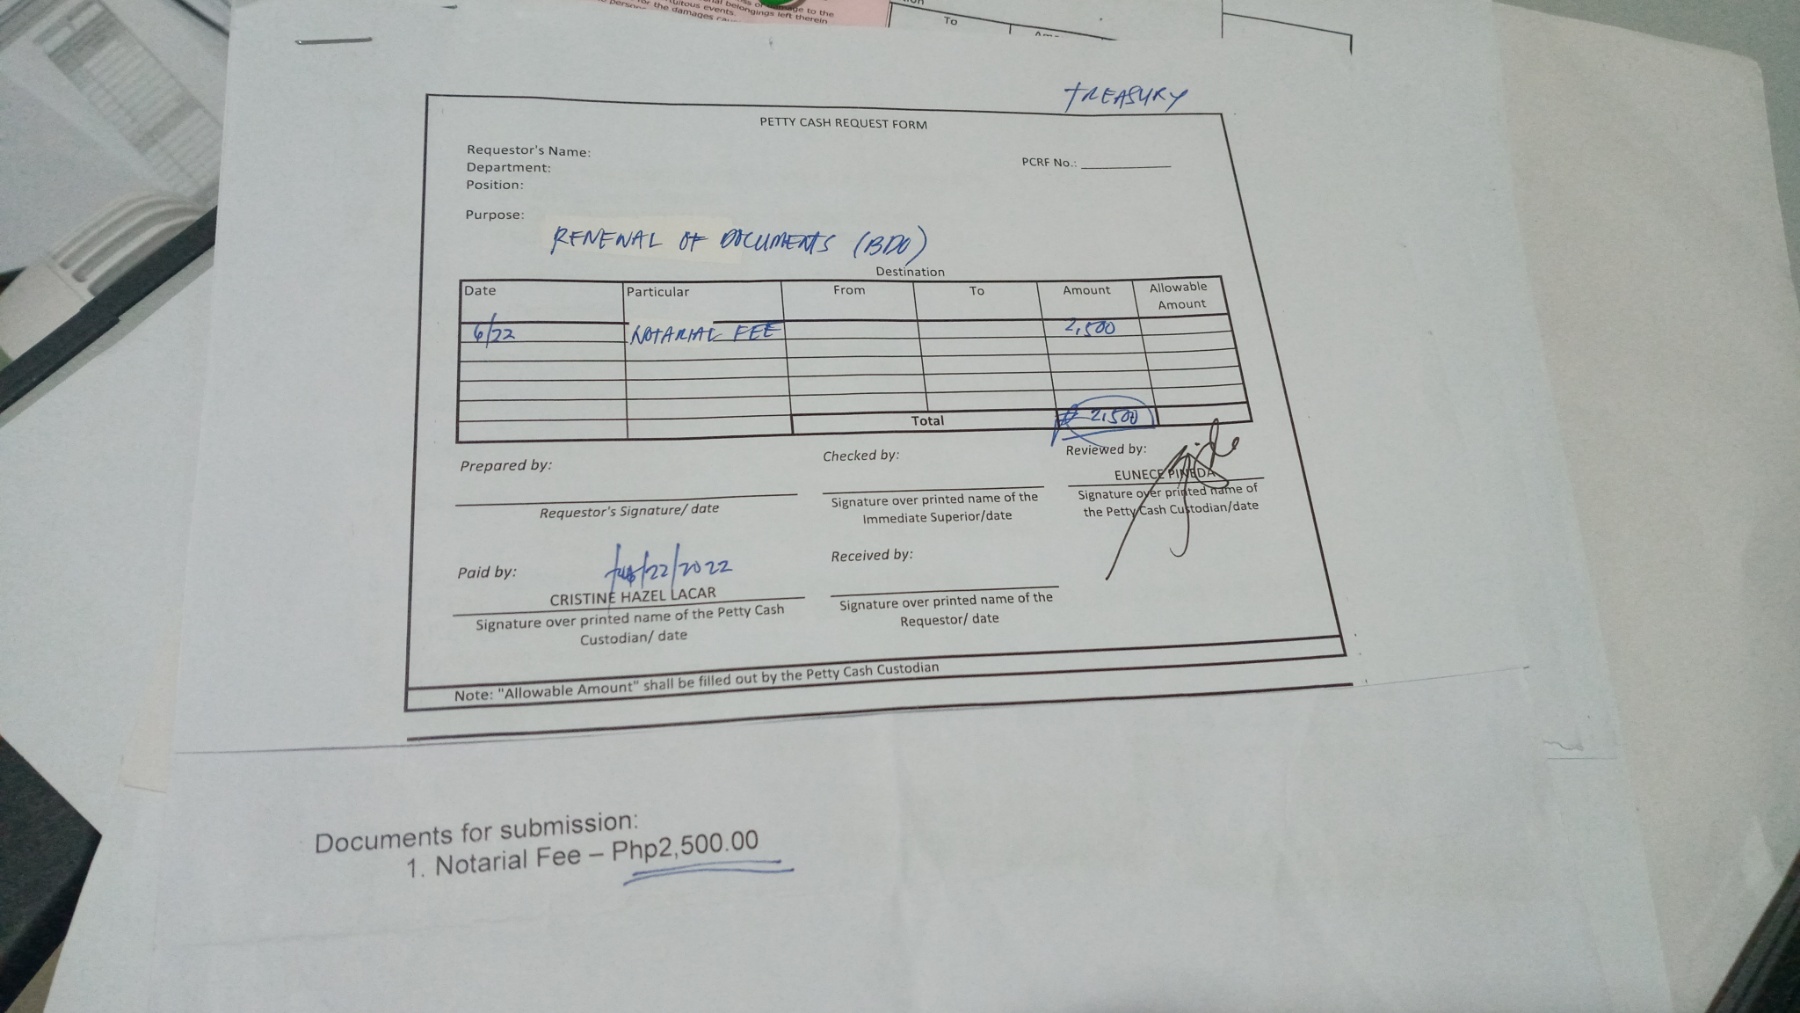 nal belongings left therein
the damages
To
TREASURY
PETTY CASH REQUEST FORM
Requestor's Name:
PCRF No.:
Department:
Position:
Purpose:
RENEWAL OF DOCUMENTS (BDO)
Destination
Date Particular From To Amount Allowable Amount
6/22 NOTARIAL FEE 2,500
Total ₱ 2,500
Prepared by: Checked by: Reviewed by:
EUNECE PINEDA
Requestor's Signature/ date
Signature over printed name of the
Immediate Superior/date
Signature over printed name of
the Petty Cash Custodian/date
Paid by: Received by:
/22/2022
CRISTINE HAZEL LACAR
Signature over printed name of the Petty Cash
Custodian/ date
Signature over printed name of the
Requestor/ date
Note: "Allowable Amount" shall be filled out by the Petty Cash Custodian
Documents for submission:
1. Notarial Fee – Php2,500.00